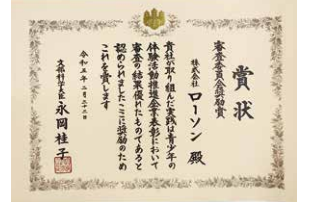 賞状
審査委員会奨励賞
株式会社 ローソン 殿
貴社が取り組んだ実践は青少年の
体験活動推進企業表彰において
審査の結果優れたものであると
認められましたここに奨励のため
これを賞します
令和五年二月二十六日
文部科学大臣 永岡桂子